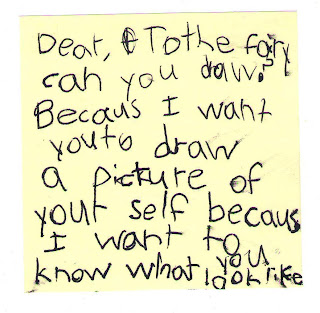 Dear, Tothe fariy
can you draw?
Becaus I want
youto draw
a picture of
your self becaus
I want to
know what you
look like